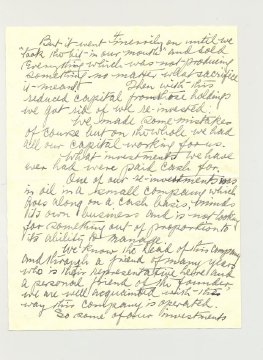 But it went merrily on until we
"took the bit in our mouth" and sold
Everything which was not producing
something no matter what sacrifice
it meant. Then with this
reduced capital from our holdings
we got rid of we re-invested.
We made some mistakes
of course but on the whole we had
all our capital working for us.
What investments we have
ever had were paid cash for.
One of our investments was
in oil in a small company which
goes along on a cash basis, minds
its own business and is not looking
for something out of proportion to
its ability to manage.
We know the head of this company
and through a friend of many years
who is their representative here and
a personal friend of the founder
we are well acquainted with the
way this company is operated.
So some of our Investments